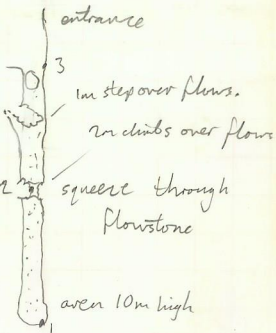 entrance
3
1m step over flows.
2m climbs over flows
2
squeeze through
flowstone
aven 10m high
1